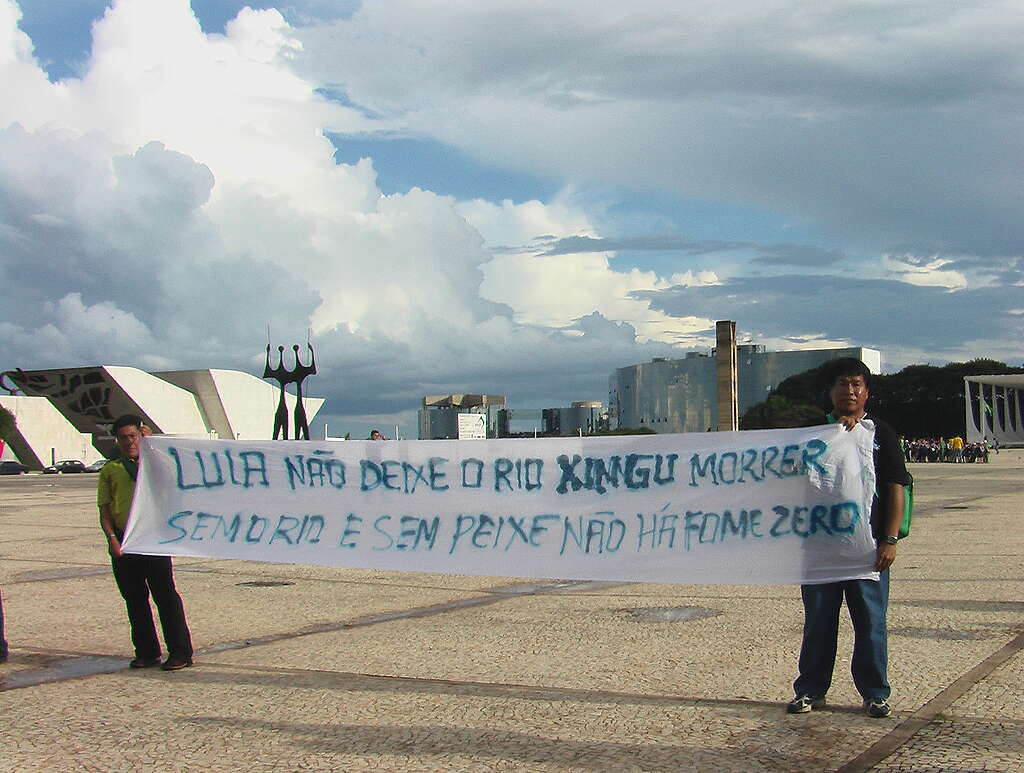 LULA NÃO DEIXE O RIO XINGU MORRER
SEM O RIO E SEM PEIXE NÃO HÁ FOME ZERO